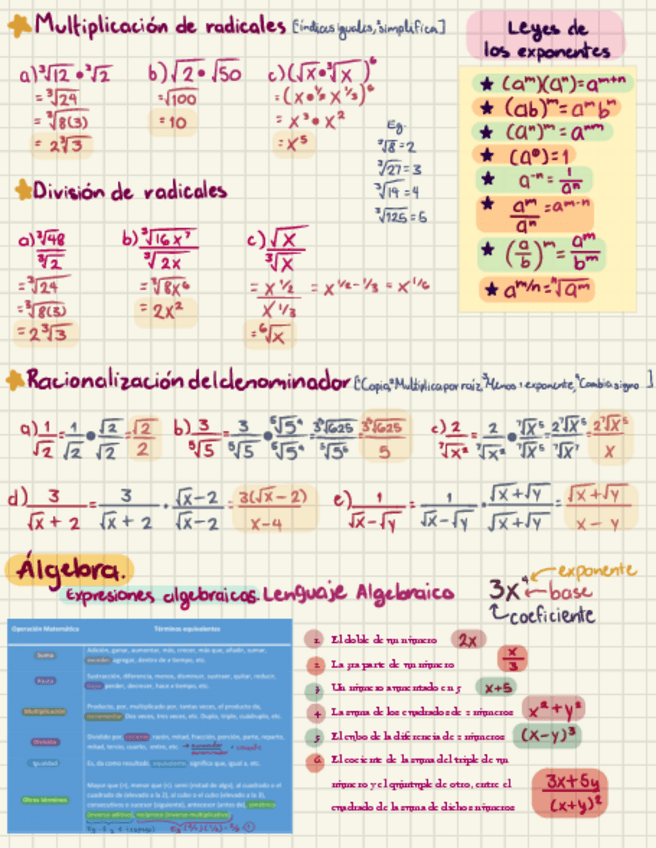 Multiplicación de radicales [¹índices iguales, ²simplifica]
a) ³√12 • ³√2
= ³√24
= ³√8(3)
= 2³√3
b) √2 • √50
= √100
= 10
c) (√x • ³√x)⁶
= (x • ½ x ⅓)⁶
= x³ • x²
= x⁵
Eg.
³√8 = 2
³√27 = 3
³√14 = 4
³√125 = 5
Leyes de
los exponentes
★ (aᵐ)(aⁿ) = aᵐ⁺ⁿ
★ (ab)ᵐ = aᵐbᵐ
★ (aⁿ)ᵐ = aⁿᵐ
★ (a⁰) = 1
★ a⁻ⁿ = 1/aⁿ
★ aᵐ/aⁿ = aᵐ⁻ⁿ
★ (a/b)ᵐ = aᵐ/bᵐ
★ aᵐ/ⁿ = ⁿ√aᵐ
División de radicales
a) ³√48 / ³√2
= ³√24
= ³√8(3)
= 2³√3
b) ³√16x⁷ / ³√2x
= ³√8x⁶
= 2x²
c) √x / ³√x
= x^1/2 / x^1/3 = x^1/2-1/3 = x^1/6
= ⁶√x
Racionalización del denominador [¹Copia, ²Multiplica por raíz, ³Menos 1 exponente, ⁴Cambia signo]
a) 1/√2 = 1/√2 • √2/√2 = √2/2
b) 3/⁵√5 = 3/⁵√5 • ⁵√5⁴/⁵√5⁴ = 3⁵√625/⁵√5⁵ = 3⁵√625/5
c) 2/⁷√x² = 2/⁷√x² • ⁷√x⁵/⁷√x⁵ = 2⁷√x⁵/⁷√x⁷ = 2⁷√x⁵/x
d) 3/√x + 2 = 3/√x + 2 • √x - 2/√x - 2 = 3(√x - 2)/x - 4
e) 1/√x - √y = 1/√x - √y • √x + √y/√x + √y = √x + √y/x - y
Álgebra.
Expresiones algebraicas. Lenguaje Algebraico
3x⁴
exponente
base
coeficiente
Operación Matemática Términos equivalentes
Suma Adición, ganar, aumentar, más, crecer, más que, añadir, sumar,
exceder, agregar, dentro de x tiempo, etc.
Resta Sustracción, diferencia, menos, disminuir, sustraer, quitar, reducir,
perder, decrecer, hace x tiempo, etc.
Multiplicación Producto, por, multiplicado por, tantas veces, el producto de,
incrementar Dos veces, tres veces, etc. Duplo, triple, cuádruplo, etc.
División Dividido por cociente, razón, mitad, fracción, porción, parte, reparto,
mitad, tercio, cuarto, entre, etc.
Igualdad Es, da como resultado, equivalente, significa que, igual a, etc.
Otros términos Mayor que (>), menor que (<), semi (mitad de algo), al cuadrado o el
cuadrado de (elevado a la 2), al cubo o el cubo (elevado a la 3),
consecutivo o sucesor (siguiente), antecesor (antes de), simétrico
(inverso aditivo), recíproco (inverso multiplicativo)
1. El doble de un número 2x
2. La 3ra parte de un número x/3
3. Un número aumentado en 5 x+5
4. La suma de los cuadrados de 2 números x² + y²
5. El cubo de la diferencia de 2 números (x-y)³
6. El cociente de la suma del triple de un
número y el quíntuple de otro, entre el
cuadrado de la suma de dichos números 3x+5y/(x+y)²